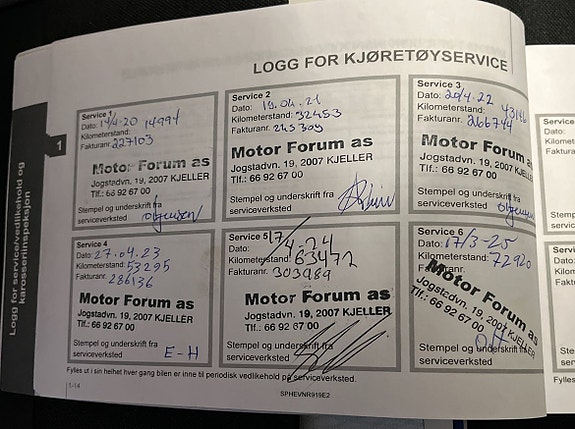 LOGG FOR KJØRETØYSERVICE
Logg for service/vedlikehold og
karosseriinspeksjon
1
Service 1
Dato: 14/4-20 14994
Kilometerstand:
Fakturanr. 227103
Motor Forum as
Jogstadvn. 19, 2007 KJELLER
Tlf.: 66 92 67 00
Stempel og underskrift fra
serviceverksted
Service 2
Dato: 19.04.21
Kilometerstand: 32453
Fakturanr. 245309
Motor Forum as
Jogstadvn. 19, 2007 KJELLER
Tlf.: 66 92 67 00
Stempel og underskrift fra
serviceverksted
Service 3
Dato: 20/4-22
Kilometerstand: 43146
Fakturanr. 266744
Motor Forum as
Jogstadvn. 19, 2007 KJELLER
Tlf.: 66 92 67 00
Stempel og underskrift fra
serviceverksted
Service 4
Dato: 27.04.23
Kilometerstand: 53295
Fakturanr. 286136
Motor Forum as
Jogstadvn. 19, 2007 KJELLER
Tlf.: 66 92 67 00
Stempel og underskrift fra
serviceverksted E-H
Service 5
Dato: 17/4-24
Kilometerstand: 63472
Fakturanr. 303989
Motor Forum as
Jogstadvn. 19, 2007 KJELLER
Tlf.: 66 92 67 00
Stempel og underskrift fra
serviceverksted
Service 6
Dato: 17/3-25
Kilometerstand: 72920
Fakturanr.
Motor Forum as
Jogstadvn. 19, 2007 KJELLER
Tlf.: 66 92 67 00
Stempel og underskrift fra
serviceverksted
Fylles ut i sin helhet hver gang bilen er inne til periodisk vedlikehold på serviceverksted.
1-14
SPHEVNR919E2